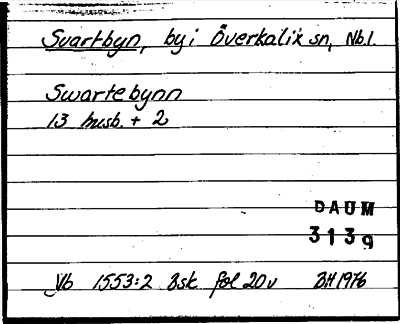 Svartbyn, by i Överkalix sn, Nb.l.
Swartebynn
13 husb. + 2
DAUM
3139
Vb 1553:2 Bsk fol 20v BH 1976